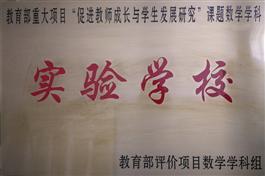 教育部重大项目“促进教师成长与学生发展研究”课题数学学科
实验学校
教育部评价项目数学学科组